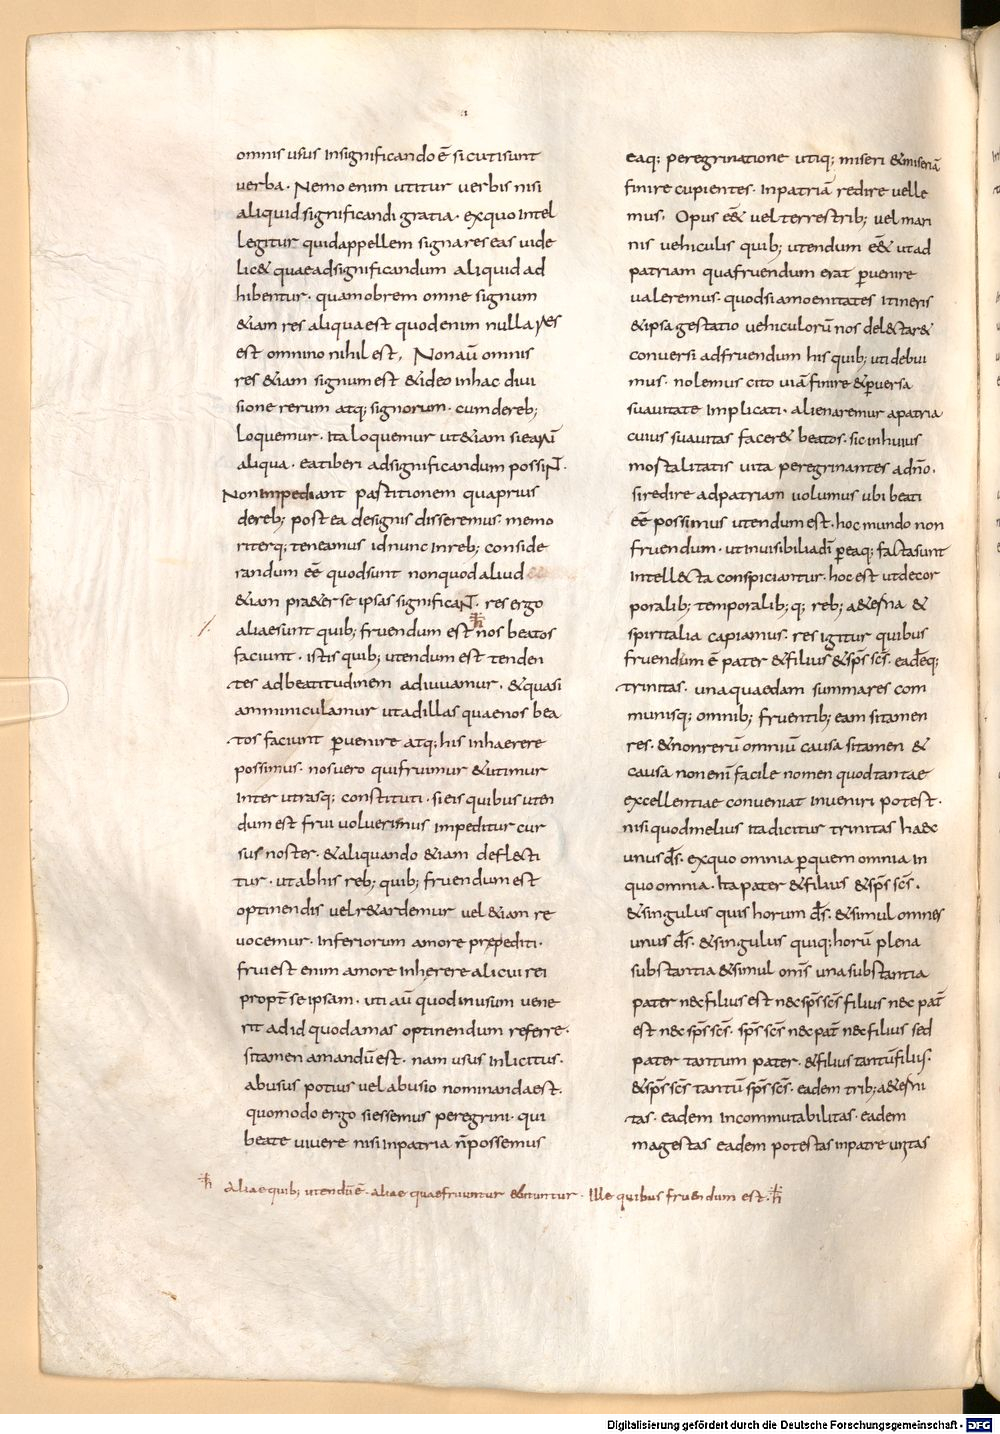 omnis usus insignificando ē sicut sunt
verba. Nemo enim utitur verbis nisi
aliquid significandi gratia. ex quo intel
legitur quid appellem signa res eas uide
lic& quae ad significandum aliquid ad
hibentur. quam obrem omne signum
&iam res aliqua est quod enim nulla res
est omnino nihil est, Non aū omnis
res &iam signum est & ideo in hac diui
sione rerum atq; signorum. cum de reb;
loquemur. Ita loquemur ut &iam si earū
aliqua. eatiberi ad significandum possiNT.
Non impediant partitionem qua prius
de reb; post ea de signis disseremus. memo
riterq; teneamus id nunc in reb; conside
randum eē quod sunt non quod aliud
&iam pra&er se ipsas significaNT. res ergo
aliae sunt quib; fruendum est nos beatos
faciunt. istis quib; utendum est tenden
tes ad beatitudinem adiuuamur. & quasi
amminiculamur ut ad illas quae nos bea
tos faciunt p̱uenire atq; his inhaerere
possimus. nos uero qui fruimur & utimur
inter utrasq; constituti. si eis quibus uten
dum est frui uoluerimus impeditur cur
sus noster. & aliquando &iam defl&ti
tur. ut ab his reb; quib; fruendum est
optinendis uel r&ardemur uel &iam re
uocemur. inferiorum amore prepediti.
frui est enim amore inherere alicui rei
propt̄ se ipsam. uti aū quod in usum uene
rit ad id quod amas optinendum referre.
si tamen amandū est. nam usus inlicitus.
abusus potius uel abusio nominanda est.
quomodo ergo si essemus peregrini. qui
beate uiuere nisi in patria n̄ possemus
Aliae quib; utendū ē. aliae quae fruuntur & utuntur. Ille quibus fruendum est.
eaq; peregrinatione utiq; miseri & miseriā
finire cupientes. in patriā redire uelle
mus. Opus eēt uel terrestrib; uel mari
nis uehiculis quib; utendum eēt ut ad
patriam qua fruendum erat p̱uenire
ualeremus. quod si amoenitates itineris
& ipsa gestatio uehiculorū nos del&tar&
conuersi ad fruendum his quib; uti debui
mus. nolemus cito uiā finire & p̱uersa
suauitate implicati. alienaremur a patria
cuius suauitas facer& beatos. sic in huius
mortalitatis uita peregrinantes a dn̄o.
si redire ad patriam uolumus ubi beati
eē possimus utendum est. hoc mundo non
fruendum. ut inuisibilia dī p̱ eaq; facta sunt
intell&ta conspiciantur. hoc est ut de cor
poralib; temporalib; q; reb; a&erna &
spiritalia capiamus. res igitur quibus
fruendum ē pater & filius & sp̄s sc̄s. eadēq;
trinitas. una quaedam summa res com
munisq; omnib; fruentib; eam si tamen
res. & non rerū omniū causa si tamen &
causa non enī facile nomen quod tantae
excellentiae conueniat inueniri potest.
nisi quod melius ita dicitur trinitas haec
unus d̄s. ex quo omnia p̱ quem omnia in
quo omnia. Ita pater & filius & sp̄s sc̄s.
& singulus quis horum d̄s. & simul omnes
unus d̄s. & singulus quiq; horū plena
substantia & simul om̄s una substantia
pater nec filius est nec sp̄s sc̄s filius nec pat̄
est nec sp̄s sc̄s. sp̄s sc̄s nec pat̄ nec filius sed
pater tantum pater. & filius tantū filius.
& sp̄s sc̄s tantū sp̄s sc̄s. eadem trib; a&erni
tas. eadem incommutabilitas. eadem
magestas eadem potestas in patre unitas
Digitalisierung gefördert durch die Deutsche Forschungsgemeinschaft - DFG